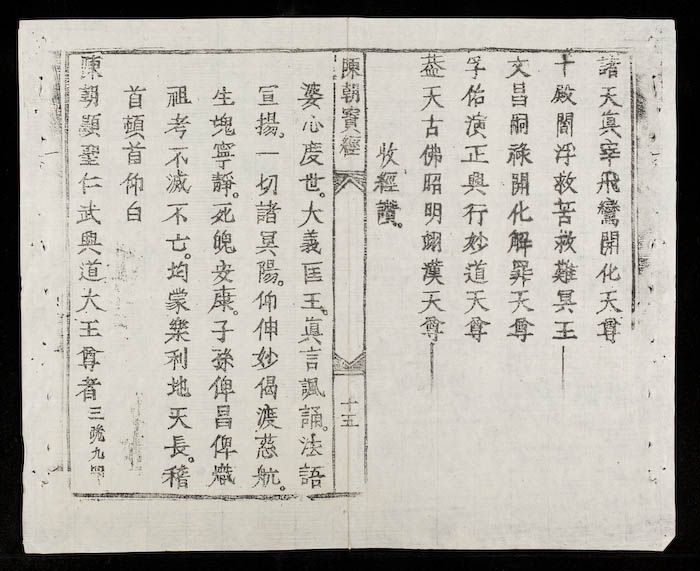 諸天真宰飛鸞開化天尊
十殿閻浮救苦救難冥王
文昌嗣祿開化解罪天尊
孚佑演正興行妙道天尊
蓋天古佛昭明翊漢天尊
收經讚。
陳朝寶經
十五
婆心度世。大義匡王。眞言諷誦。法語
宣揚。一切諸冥陽。仰伸妙偈渡慈航。
生塊寧靜。死魄安康。子孫俾昌俾熾
祖考不滅不亡。均蒙樂利地天長。稽
首頓首仰白
陳朝顯聖仁武興道大王尊者 三疏九叩